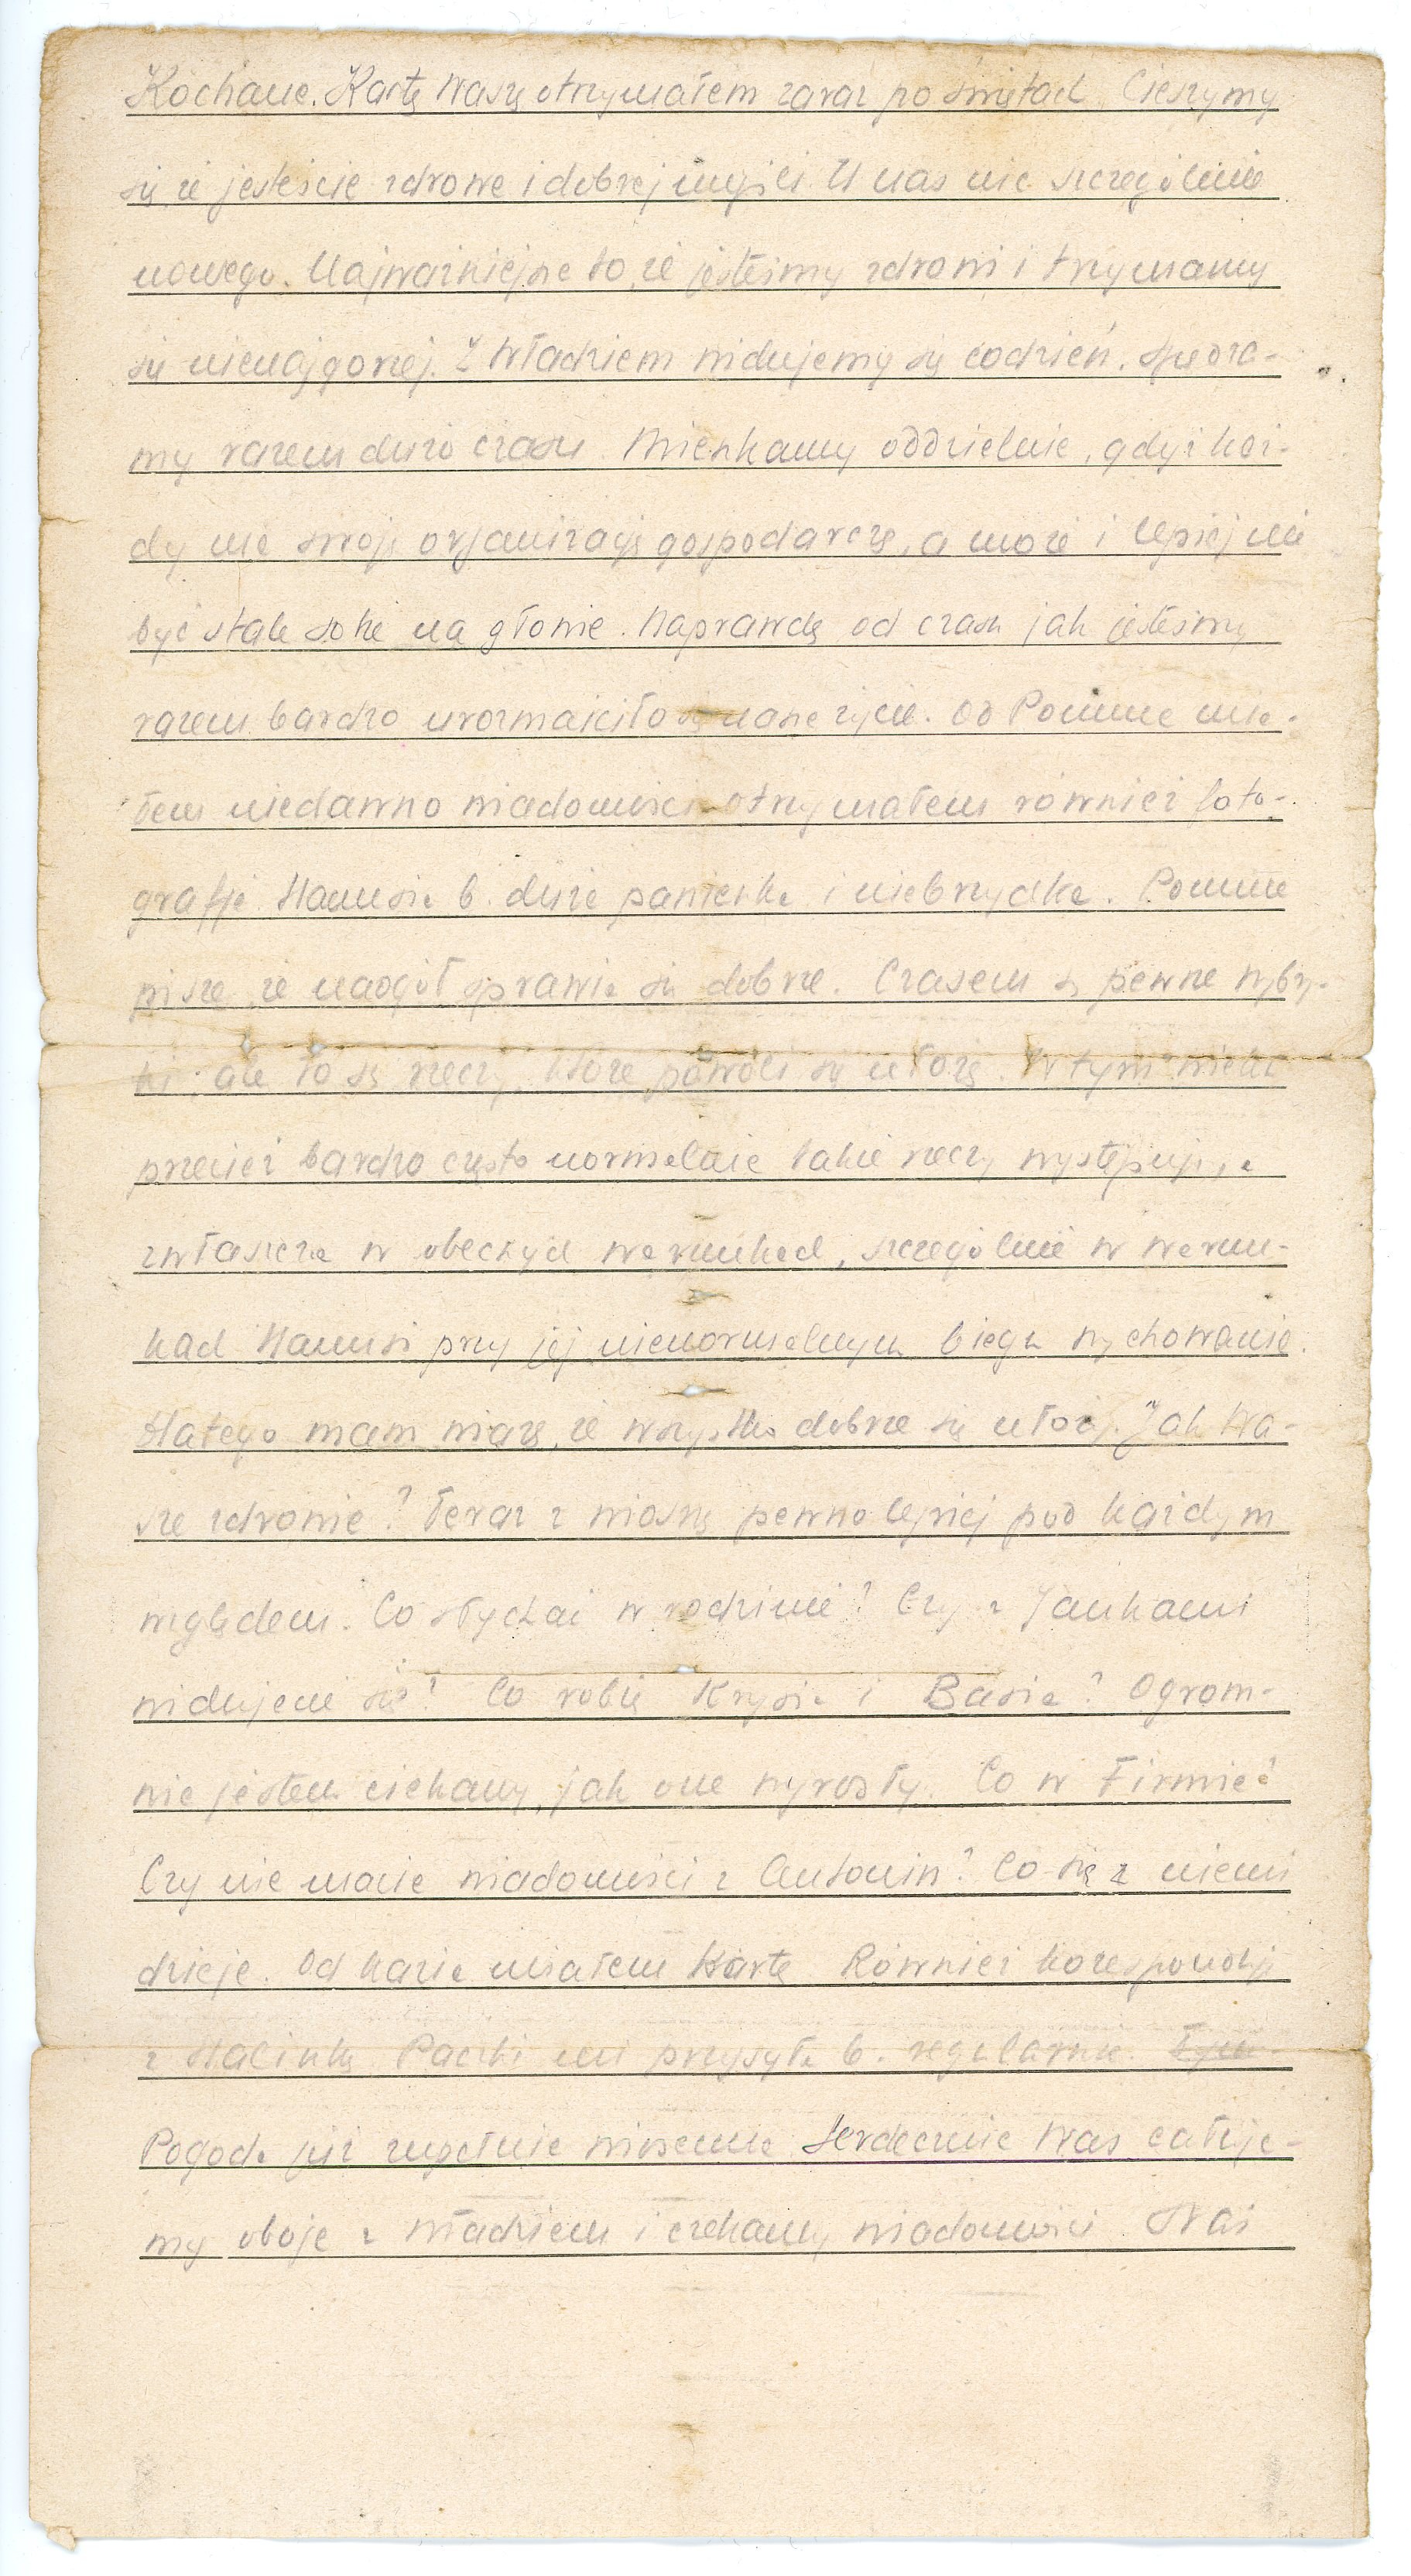 Kochane. Kartę Waszą otrzymałem zaraz po świętach. Cieszymy
się, że jesteście zdrowe i dobrej myśli. U nas nic szczególnie
nowego. Najważniejsze to, że jesteśmy zdrowi i trzymamy
się nienajgorzej. Z Władziem widujemy się codzień. Spędza-
my razem dużo czasu. Mieszkamy oddzielnie, gdyż każ-
dy ma swoją organizację gospodarczą, a może i lepiej nie
być stale sobie na głowie. Naprawdę od czasu jak jesteśmy
razem bardzo urozmaiciło się nasze życie. Od Ponime mia-
łem niedawno wiadomości otrzymałem również foto-
grafję. Hanusia b. duża panienka i niebrzydka.
pisze, że naogół sprawia się dobrze. Czasem są pewne wybry-
ki, ale to są rzeczy, które powoli się ułożą. W tym wieku
przecież bardzo często normalnie takie rzeczy występują, a
zwłaszcza w obecnych warunkach, szczególnie w warun-
kach Hanusi przy jej nienormalnym biegu wychowania.
Dlatego mam wiarę, że wszystko dobrze się ułoży. Jak Wa-
sze zdrowie? Teraz z wiosną pewno lepiej pod każdym
względem. Co słychać w rodzinie? Czy z Jankami
widujecie się? Co robią Krysia i Basia? Ogrom-
nie jestem ciekawy, jak one wyrosły. Co w Firmie?
Czy nie macie wiadomości z Antonin? Co się z niemi
dzieje. Od Kazia miałem Kartę. Również koresponduję
z Halinką. Paczki mi przysyła b. regularnie.
Pogoda już zupełnie wiosenna. Serdecznie Was całuje-
my oboje z Władziem i czekamy wiadomości. Staś